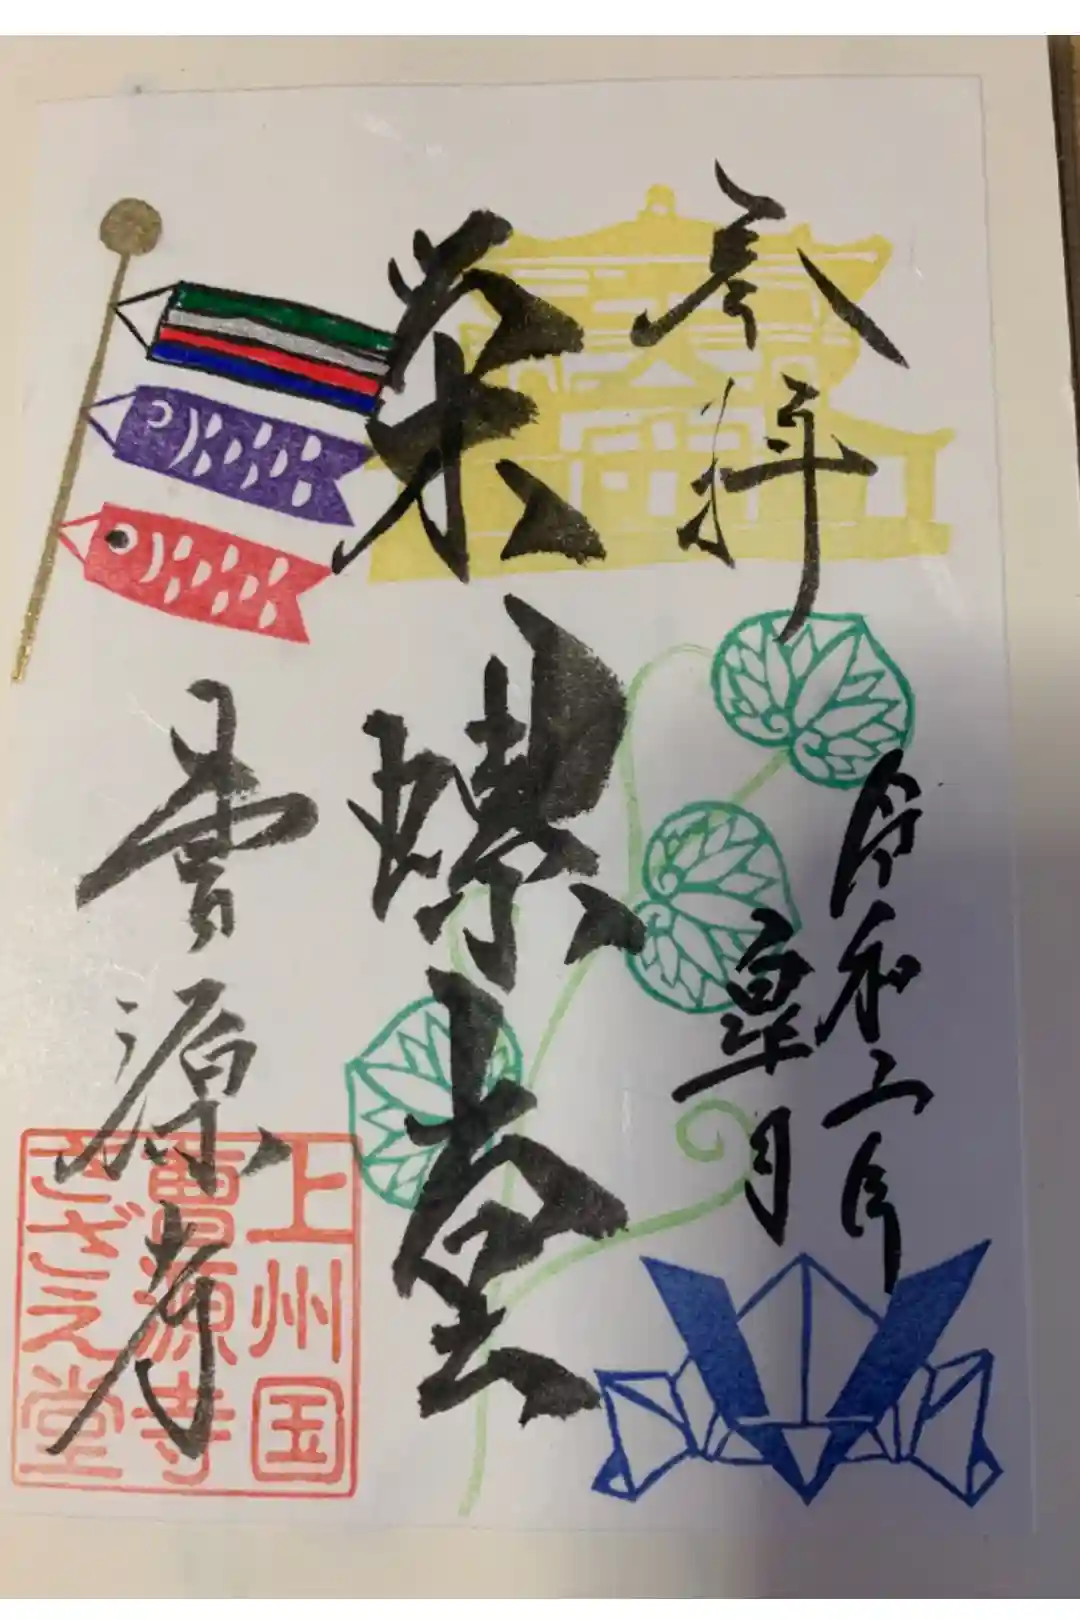 参拝
令和三年
皐月
栄螺堂
曹源寺
上州国
曹源寺
さざえ堂